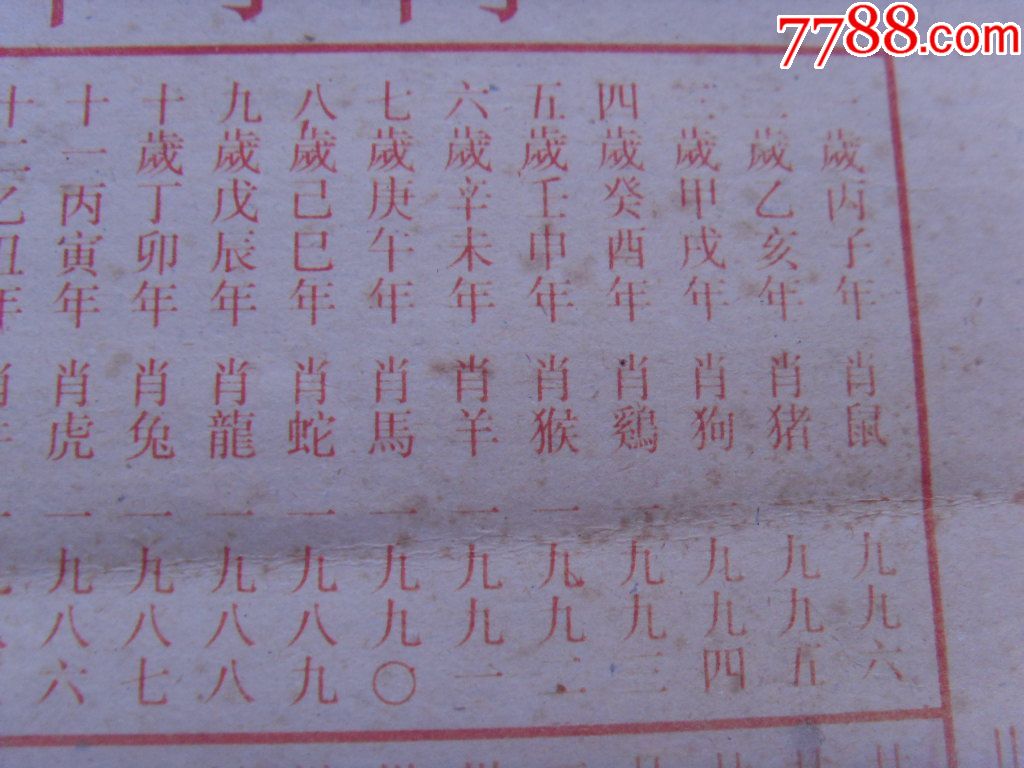 7788.com
一歲丙子年 肖鼠 一九九六
二歲乙亥年 肖猪 一九九五
三歲甲戌年 肖狗 一九九四
四歲癸酉年 肖鷄 一九九三
五歲壬申年 肖猴 一九九二
六歲辛未年 肖羊 一九九一
七歲庚午年 肖馬 一九九〇
八歲己巳年 肖蛇 一九八九
九歲戊辰年 肖龍 一九八八
十歲丁卯年 肖兔 一九八七
十一丙寅年 肖虎 一九八六
十二乙丑年 肖